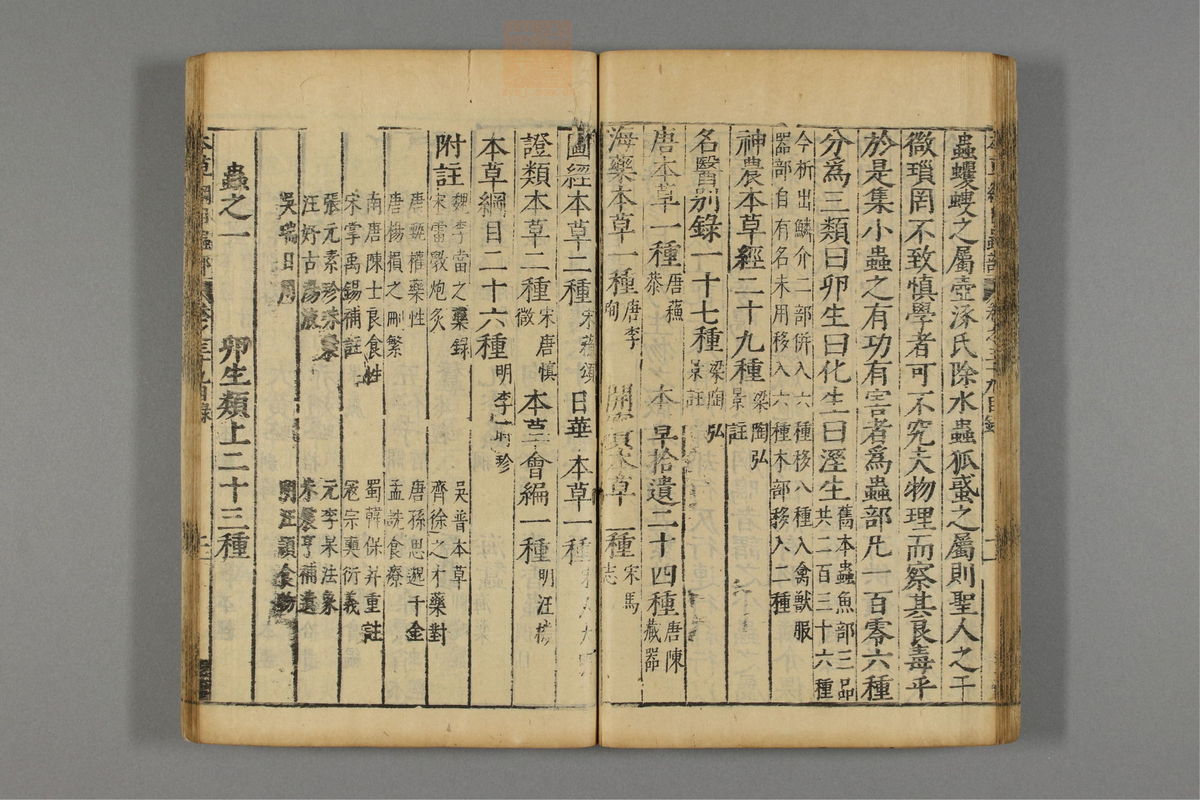 蟲蠼螋之屬壺涿氏除水蟲狐蜮之屬則聖人之于
微瑣罔不致慎學者可不究夫物理而察其良毒乎
於是集小蟲之有功有害者為蟲部凡一百零六種
分為三類曰卵生曰化生曰溼生舊本蟲魚部三品共二百三十六種
今析出鱗介二部併入六種移八種入禽獸服
器部自有名未用移入六種木部移入二種
神農本草經二十九種梁陶弘景註
名醫别錄一十七種梁陶弘景註
唐本草一種唐蘇恭 本草拾遺二十四種唐陳藏器
海藥本草一種唐李珣 開寶本草一種宋馬志
圖經本草二種宋蘇頌 日華本草一種宋人大明
證類本草二種宋唐慎微 本草會編一種明汪機
本草綱目二十六種明李時珍
附註
魏李當之藥録 吳普本草
宋雷斆炮炙 齊徐之才藥對
唐甄權藥性 唐孫思邈千金
唐楊損之刪繁 孟詵食療
南唐陳士良食性 蜀韓保昇重註
宋掌禹錫補註 寇宗奭衍義
張元素珍珠囊 元李杲法象
汪好古湯液 朱震亨補遺
吳瑞日用 明汪頴食物
蟲之一 卵生類上二十三種